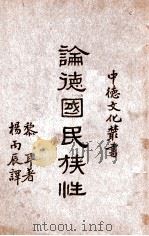 中德文化叢書
論德國民族性
黎耳著
楊丙辰譯
mtoou.info